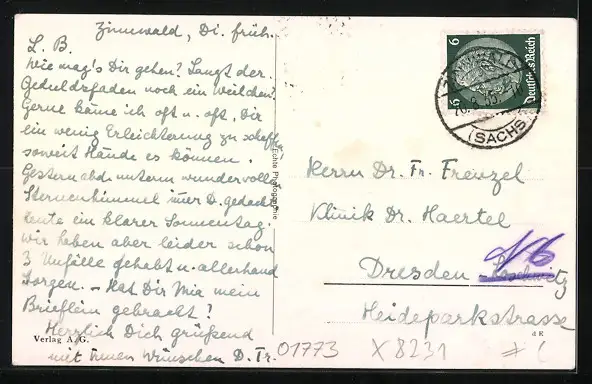 Zinnwald, Di. früh.
L. B.
Wie mag's Dir gehen? Langt der
Geduldsfaden noch ein Weilchen?
Gerne käme ich oft u. oft, Dir
ein wenig Erleichterung zu schaff
soweit Hände es können.
Gestern abd. unterm wundervoll
Sternenhimmel Dein gedacht
heute ein klarer Sonnentag.
Wir haben aber leider schon
3 Unfälle gehabt u. allerhand
Sorgen. - Hat Dir Mia mein
Brieflein gebracht?
Herzlich Dich grüßend
mit treuen Wünschen D. Tr.
Verlag A. G.
Echte Photographie
6 6
Deutsches Reich
(SACHS.
Herrn Dr. Fr. Frenzel
Klinik Dr. Haertel
Dresden - Loschwitz
N6
Heideparkstrasse
01773 X 8231